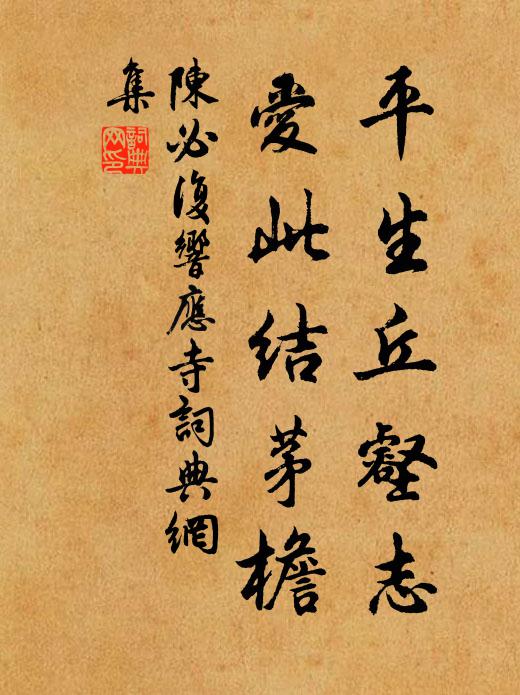 平生丘壑志
愛此結茅檐
陳必復響應寺詞典網
集
詞典網印